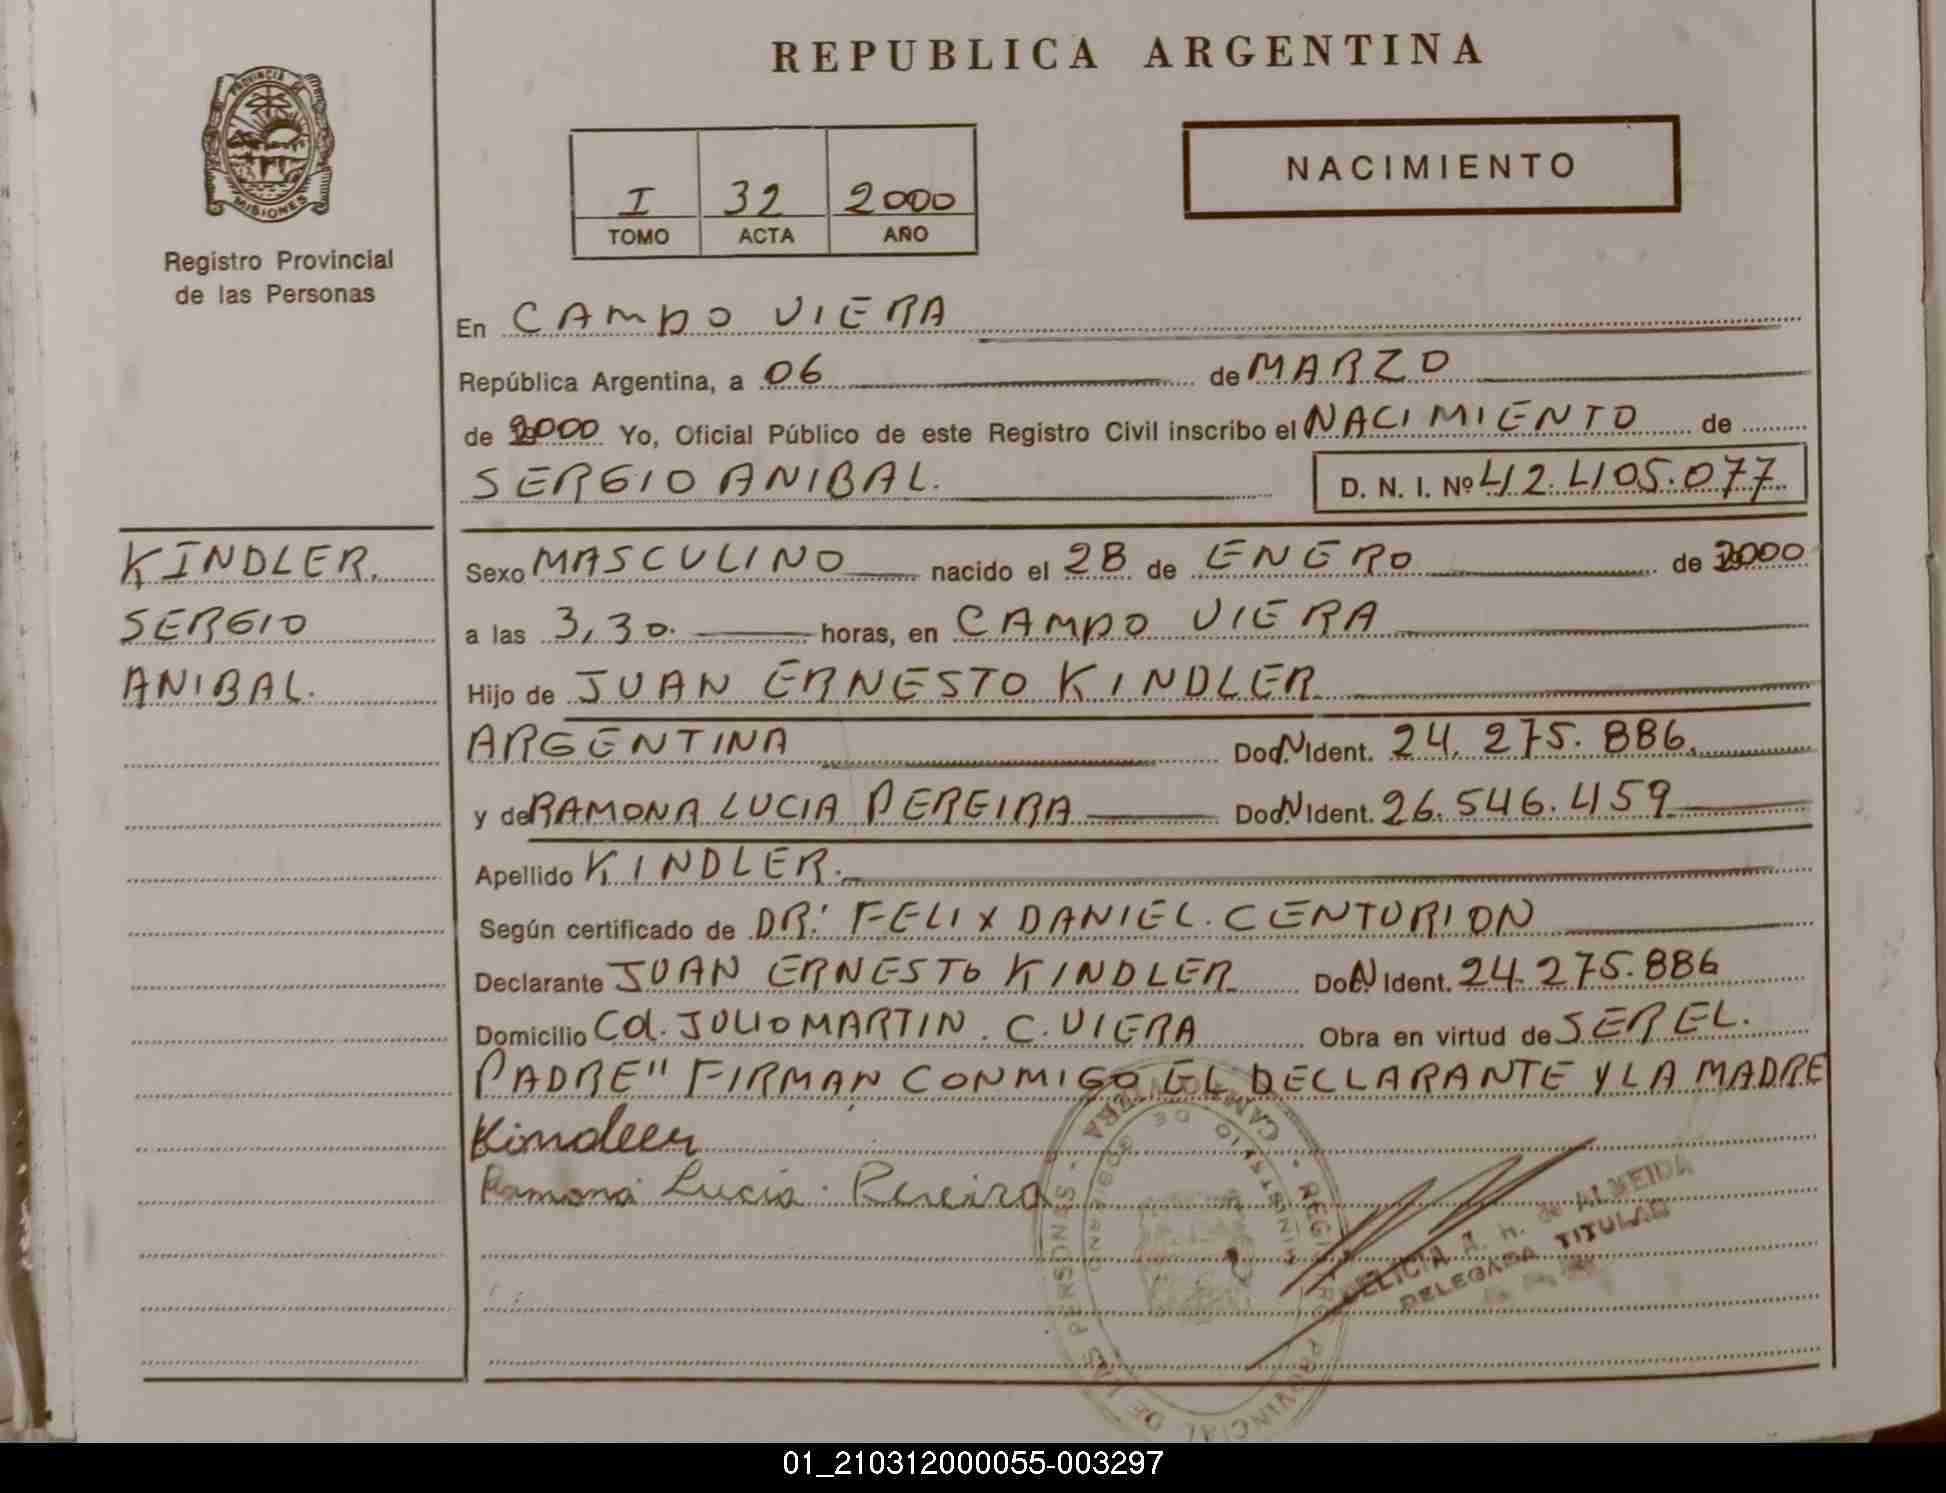 REPUBLICA ARGENTINA
PROVINCIA DE
MISIONES
Registro Provincial
de las Personas
I 32 2000
TOMO ACTA AÑO
NACIMIENTO
En CAMPO VIERA
República Argentina, a 06 de MARZO
de 2000 Yo, Oficial Público de este Registro Civil inscribo el NACIMIENTO de
SERGIO ANIBAL. D. N. I. Nº 42.405.077
KINDLER.
SERGIO
ANIBAL.
Sexo MASCULINO nacido el 28 de ENERO de 2000
a las 3,30. horas, en CAMPO VIERA
Hijo de JUAN ERNESTO KINDLER
ARGENTINA Doc. N Ident. 24.275.886.
y de RAMONA LUCIA PEREIRA Doc. N Ident. 26.546.459
Apellido KINDLER.
Según certificado de DR. FELIX DANIEL CENTURION
Declarante JUAN ERNESTO KINDLER Doc. N Ident. 24.275.886
Domicilio Col. JULIO MARTIN. C. VIERA Obra en virtud de SER EL.
PADRE" FIRMAN CONMIGO EL DECLARANTE Y LA MADRE
Kindler
Ramona Lucia Pereira
REGISTRO PROVINCIAL DE LAS PERSONAS - CAMPO VIERA -
MINISTERIO DE GOBIERNO
A. H. de ALMEIDA
DELEGADA TITULAR
01_210312000055-003297